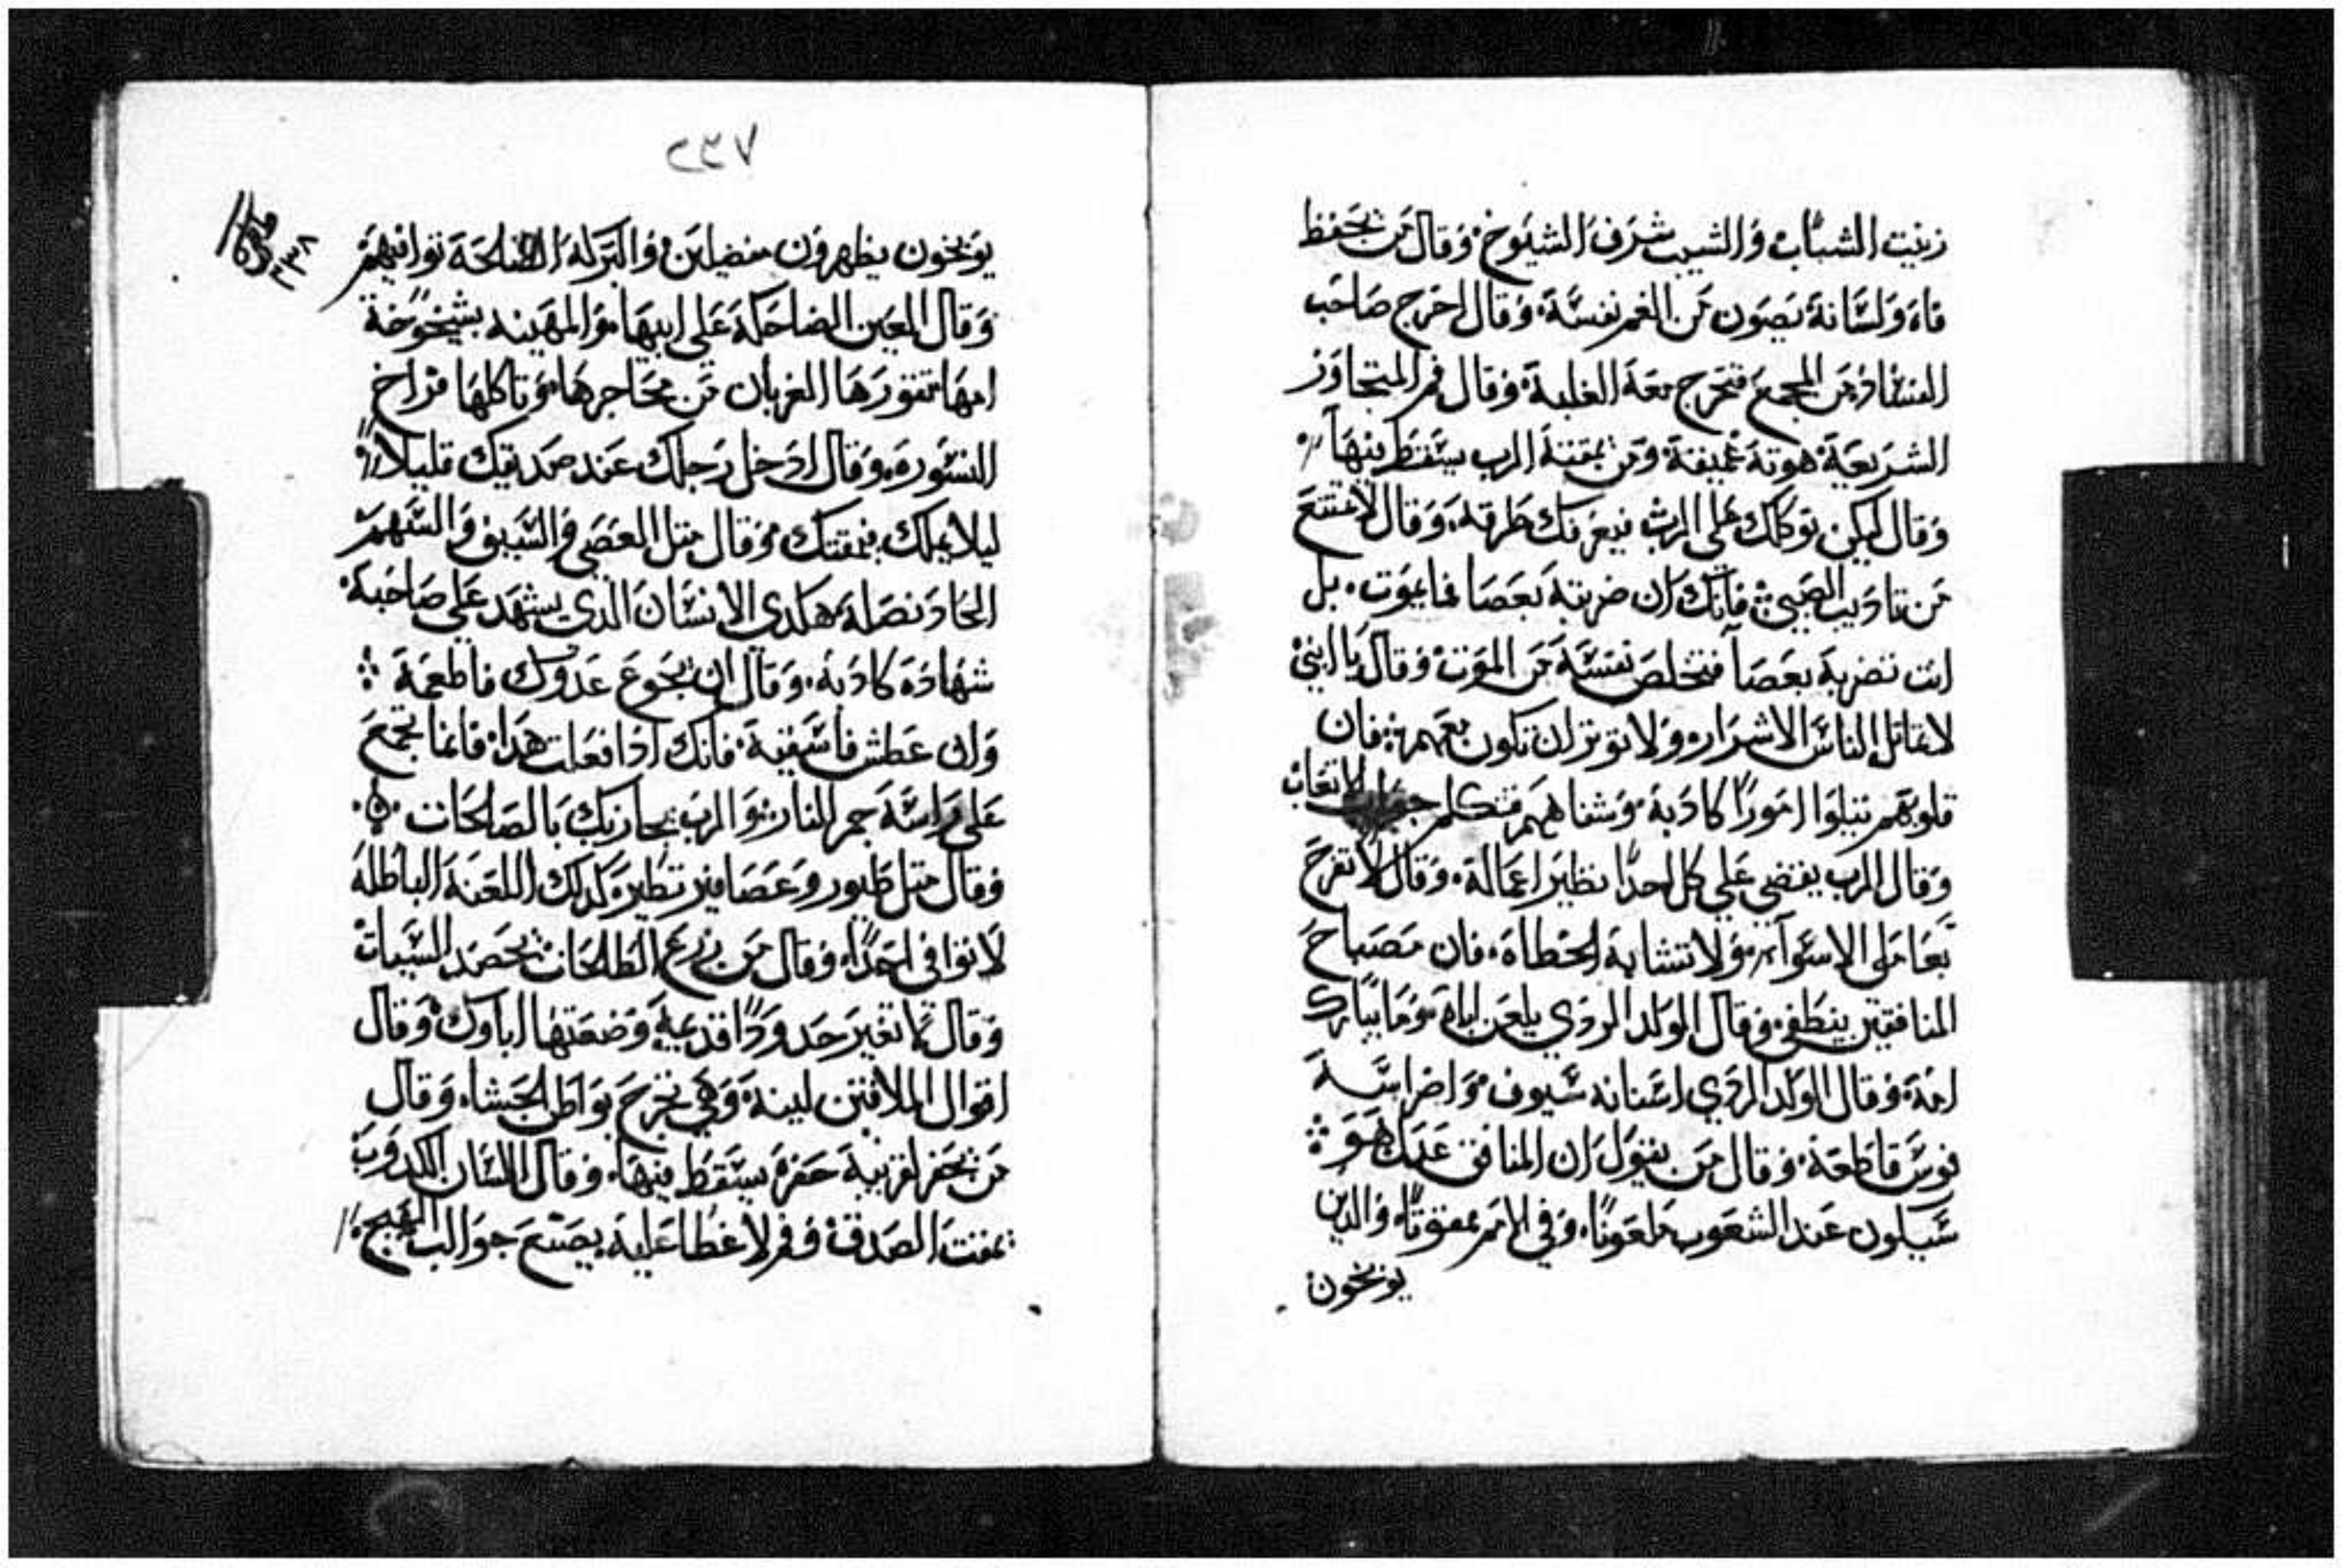 زينت الشباب والشيب شرف الشيوخ وقال من يحفظ
فاه ولسانه يصون من الغم نفسه وقال اخرج صاحب
الفساد من المجمع فتخرج معه الغلبة وقال فم المتجاوز
الشريعة هوته عميقة ومن يمقته الرب يسقط فيها
وقال ليكن توكلك علي الرب فيعرفك طرقه وقال لا تمتنع
من تاديب الصبي فانك ان ضربته بعصا فما يموت بل
انت تضربه بعصا فتخلص نفسه من الموت وقال يا ابني
لا تقاتل الناس الاشرار ولا توتر ان تكون معهم فان
قلوبهم تتلوا امورا كاذبة وشفاههم تتكلم الاتعاب
وقال الرب يقضي علي كل احدا نظير اعماله وقال لا تفرح
بعاملي الاسوآ ولا تشابه الخطاة فان مصباح
المنافقين ينطفي وقال الولد الردي يلعن اباه وما يبارك
امه وقال الولد الردي اسنانه سيوف واضراسه
فوس قاطعة وقال من يقول ان المنافق عدل هو
سيكون عند الشعوب ملعونا وفي الامم ممقوتا والذين
يوبخون
٢٣٧
٢٣٨
يوبخون يظهرون مفضلين والبركه الصالحة توافيهم
وقال العين الضاحكة علي ابيها والمهينه بشيخوخة
امها تنقورها الغربان من محاجرها وتاكلها فراخ
النسورة وقال ادخل رجلك عند صديقك قليلا
ليلا يملك فيمقتك وقال مثل العصي والسيف والسهم
الحاد نصله هكذي الانسان الذي يشهد علي صاحبه
شهادة كاذبة وقال ان يجوع عدوك فاطعمة
وان عطش فاسقية فانك اذا فعلت هذا فانما تجمع
علي راسه جمر النار والرب يجازيك بالصالحات
وقال مثل طيور وعصافير تطير كذلك اللعنة الباطلة
لا توافي احدا وقال من زرع الطلحات يحصد السيات
وقال لا تغير حدودا قديمة وضعتها اباوك وقال
اقوال الملاقين لينة وهي تخرج بواطن الحشا وقال
من يحفر لقريبه حفرة يسقط فيها وقال اللسان الكدوب
يمقت الصدق وفم لا غطا عليه يصنع جوالب